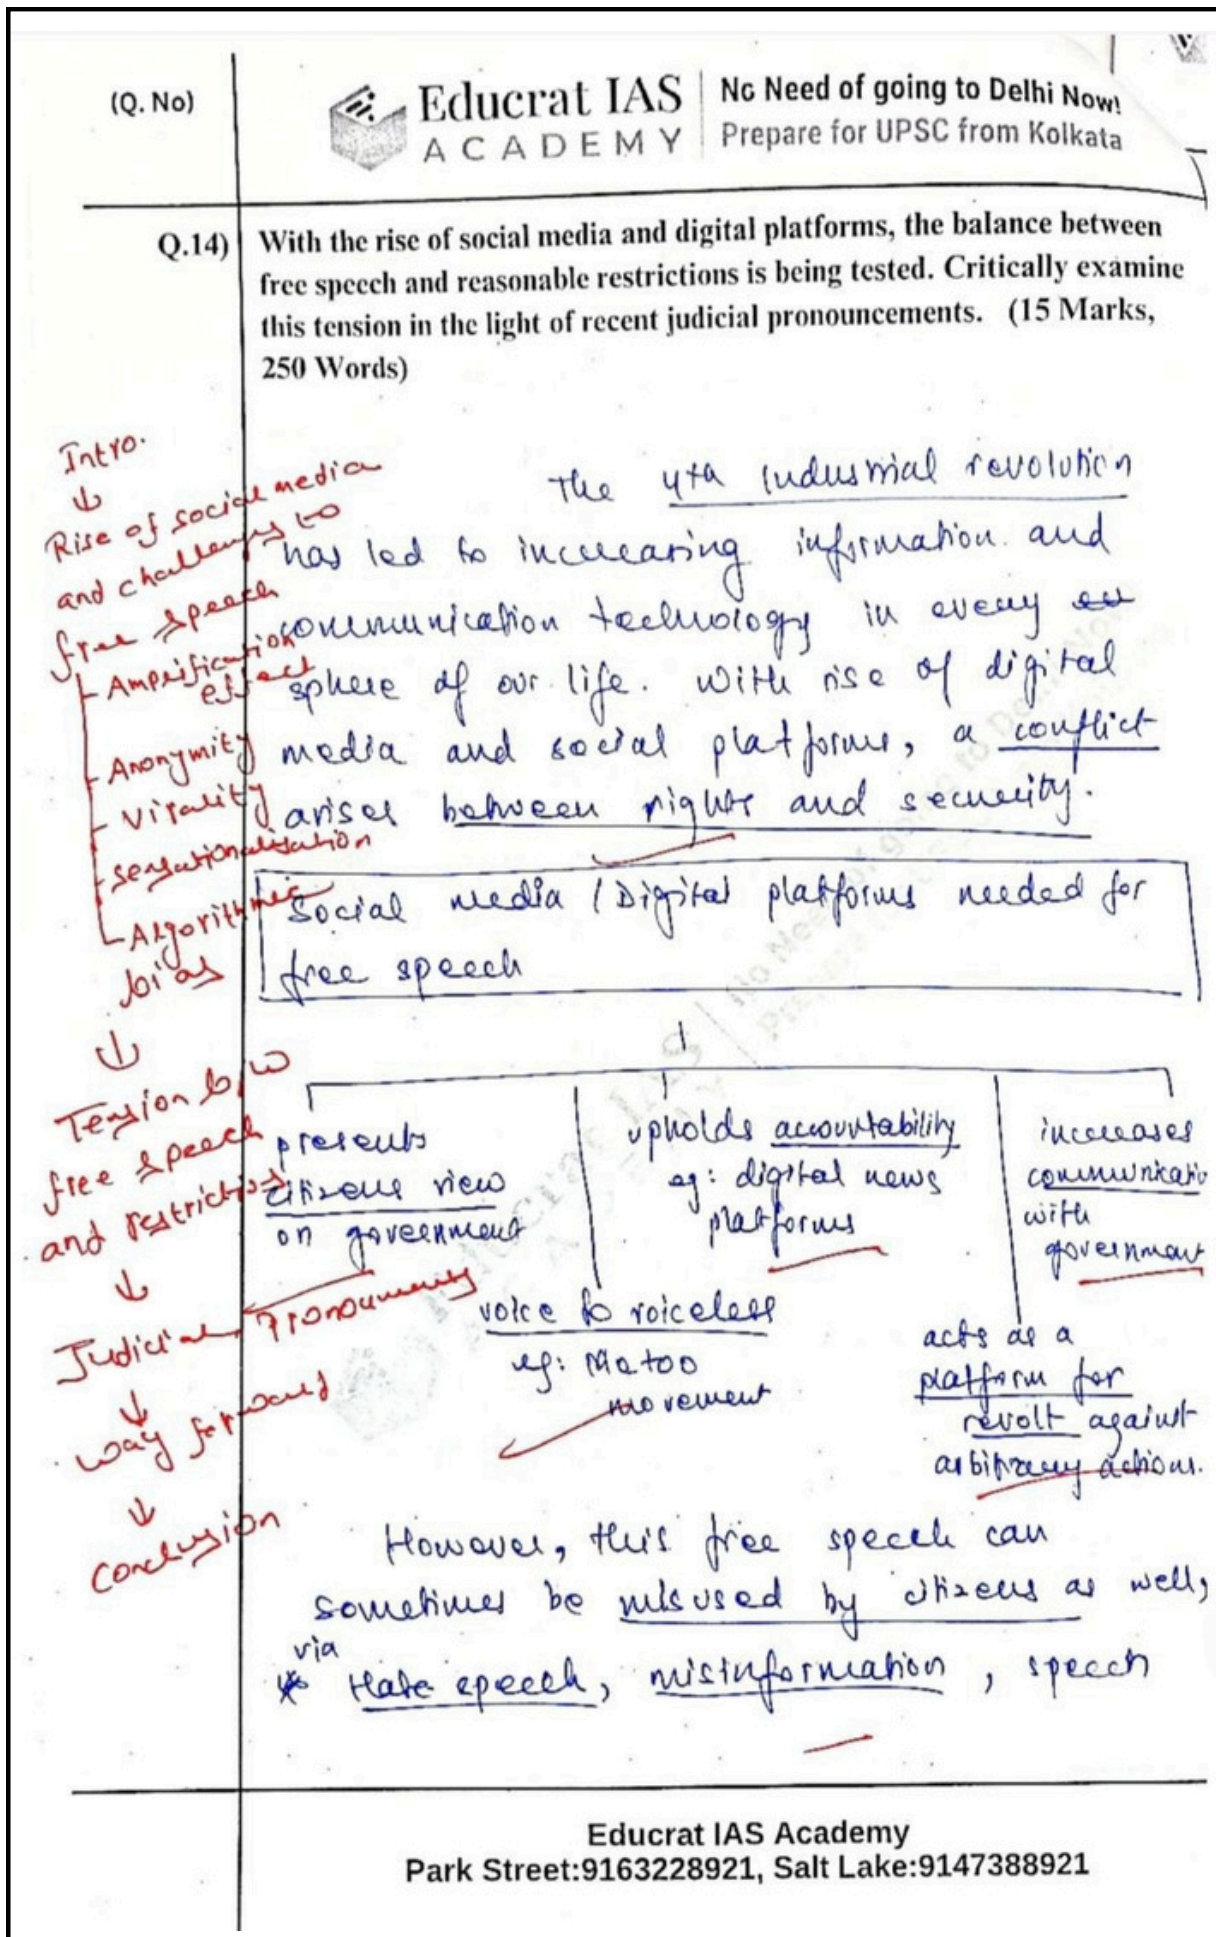 (Q. No)
Educrat IAS
ACADEMY
No Need of going to Delhi Now!
Prepare for UPSC from Kolkata
Q.14)
With the rise of social media and digital platforms, the balance between
free speech and reasonable restrictions is being tested. Critically examine
this tension in the light of recent judicial pronouncements. (15 Marks,
250 Words)
Intro.
↓
Rise of social media
and challenges to
free speech
- Amplification
effect
- Anonymity
- Virality
- sensationalisation
- Algorithmic
bias
↓
Tension b/w
free speech
and restrictions
↓
Judicial Pronouments
↓
way forward
↓
conclusion
The 4th Industrial revolution
has led to increasing information and
communication technology in every
sphere of our life. With rise of digital
media and social platforms, a conflict
arises between rights and security.
Social media / Digital platforms needed for
free speech
presents
citizens view
on government
voice to voiceless
eg: Metoo
movement
upholds accountability
eg: digital news
platforms
acts as a
platform for
revolt against
arbitrary actions.
increases
communicatio
with
government
However, this free speech can
sometimes be misused by citizens as well,
via
Hate speech, misinformation, speech
Educrat IAS Academy
Park Street:9163228921, Salt Lake:9147388921